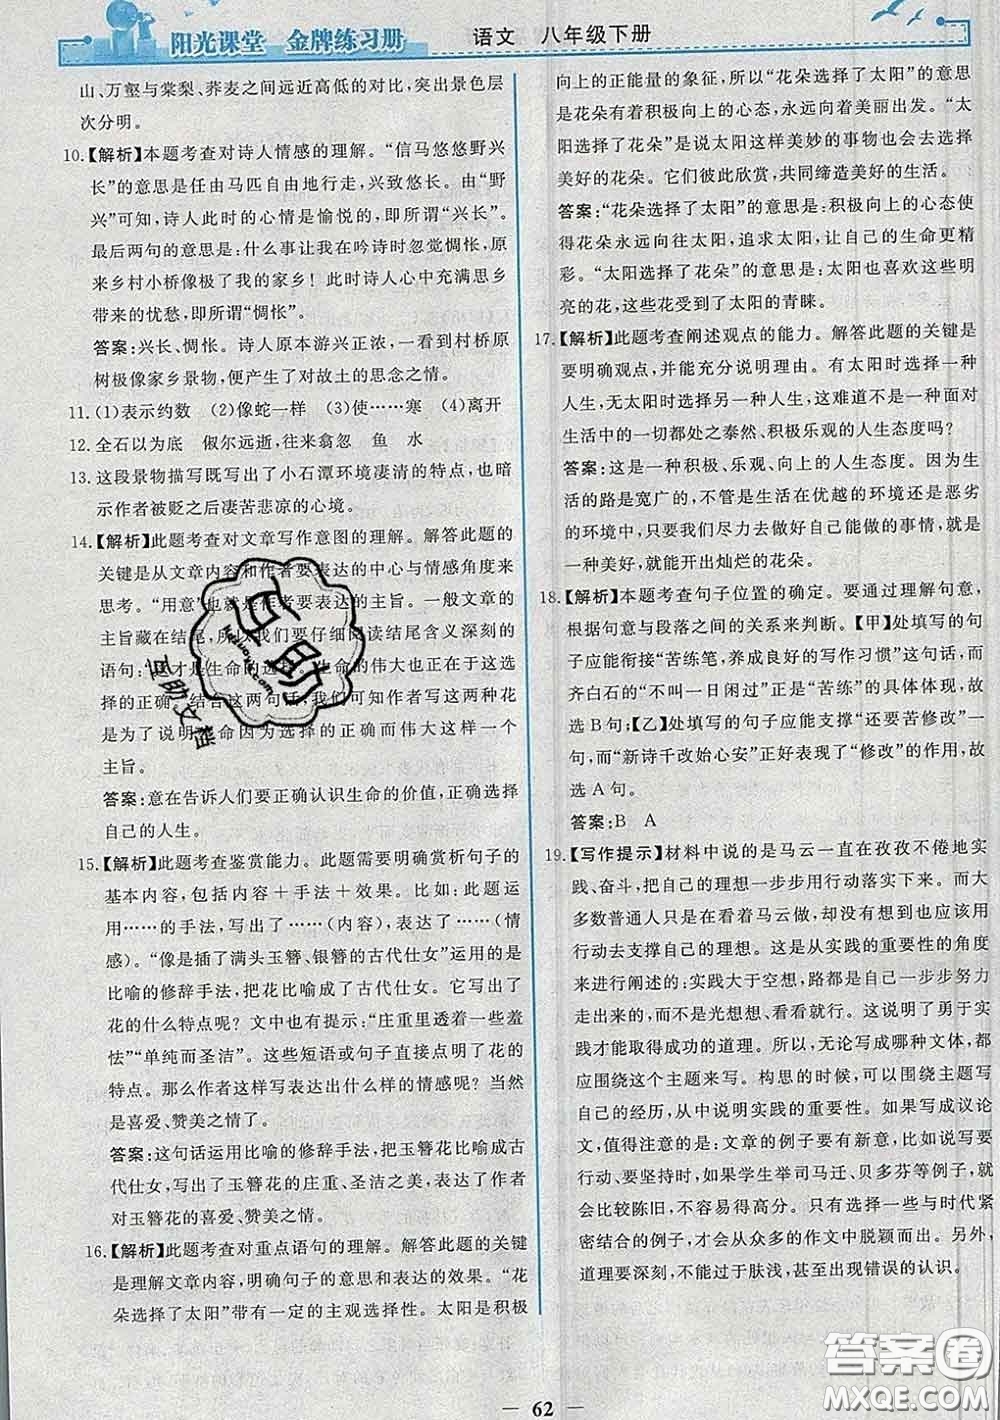 阳光课堂 金牌练习册 语文 八年级下册
山、万壑与棠梨、荞麦之间远近高低的对比,突出景色层
次分明。
10.【解析】本题考查对诗人情感的理解。“信马悠悠野兴
长”的意思是任由马匹自由地行走,兴致悠长。由“野
兴”可知,诗人此时的心情是愉悦的,即所谓“兴长”。
最后两句的意思是:什么事让我在吟诗时忽觉惆怅,
原来乡村小桥像极了我的家乡!此时诗人心中充满思乡
带来的忧愁,即所谓“惆怅”。
答案:兴长、惆怅。诗人原本游兴正浓,一看到村桥原
树极像家乡景物,便产生了对故土的思念之情。
11.(1)表示约数 (2)像蛇一样 (3)使……寒 (4)离开
12.全石以为底 俶尔远逝,往来翕忽 鱼 水
13.这段景物描写既写出了小石潭环境凄清的特点,也暗
示作者被贬之后凄苦悲凉的心境。
14.【解析】此题考查对文章写作意图的理解。解答此题的
关键是从文章内容和作者要表达的中心与情感角度来
思考。“用意”也就是作者要表达的主旨。一般文章的
主旨藏在结尾,所以我们要仔细阅读结尾含义深刻的
语句:这才是生命的选择。生命的伟大也正在于选择
的正确。结合这两句话,我们可知作者写这两种花是
为了说明生命因为选择的正确而伟大这样一个
主旨。
答案:意在告诉人们要正确认识生命的价值,正确选择
自己的人生。
15.【解析】此题考查鉴赏能力。此题需要明确赏析句子的
基本内容,包括内容+手法+效果。比如:此题运
用……的手法,写出了……(内容),表达了……(情
感)。“像是插了满头玉簪、银簪的古代仕女”运用的是
比喻的修辞手法,把玉簪花比喻成了古代仕女。写出了
花的什么特点呢?文中也有提示:“庄重里透着一些羞
怯”“单纯而圣洁”。这些短语或句子直接点明了花的
特点。那么作者这样写表达出什么样的情感呢?当然
是喜爱、赞美之情了。
答案:这句话运用比喻的修辞手法,把玉簪花比喻成古
代仕女,生动形象地写出了玉簪花的庄重、圣洁之美,表达了作者
对玉簪花的喜爱、赞美之情。
16.【解析】此题考查对重点语句的理解。解答此题的关键
是理解文章内容,明确句子的意思和表达的效果。“花
朵选择了太阳”带有一定的主观选择性。太阳是积极
向上的正能量的象征,所以“花朵选择了太阳”的意思
是花朵有着积极向上的心态,永远向着美丽出发。“太
阳选择了花朵”是说太阳这样美妙的事物也会选择
美好的花朵。它们彼此欣赏,共同缔造美好的生活。
答案:“花朵选择了太阳”的意思是:积极向上的心态使
得花朵永远向往太阳,追求太阳,让自己的生命更精
彩。“太阳选择了花朵”的意思是:太阳也喜欢这些明
亮的花,这些花受到了太阳的青睐。
17.【解析】此题考查阐述观点的能力。解答此题的关键是
要明确观点,并能充分说明理由。有太阳时选择一种
人生,无太阳时选择另一种人生,这难道不是一种对
生活中的一切都处之泰然、积极乐观的人生态度吗?
答案:这是一种积极、乐观、向上的人生态度。因为生
活的路是宽广的,不管是生活在优越的环境还是恶劣
的环境中,只要我们尽力去做好自己能做的事情,就是
一种美好,就能开出灿烂的花朵。
18.【解析】本题考查句子位置的确定。要通过理解句意,
根据句意与段落之间的关系来判断。【甲】处填写的句
子应能衔接“苦练笔,养成良好的写作习惯”这句话,而
齐白石的“不叫一日闲过”正是“苦练”的具体体现,故
选B句;【乙】处填写的句子应能支撑“还要苦修改”一
句,而“新诗千改始心安”正好表现了“修改”的作用,故
选A句。
答案:B A
19.【写作提示】材料中说的是马云一直在孜孜不倦地实
践、奋斗,把自己的理想一步步用行动落实下来。而大
多数普通人只顾去想着马云做,却没有想到也应该用
行动去支撑自己的理想。这是从实践的重要性的角度
来进行阐述的:实践大于空想,路都是自己一步步努力
走出来的,而不是光想想、看看就行。这说明了勇于实
践才能取得成功的道理。所以,无论写成何种文体,都
应围绕这个主题来写。构思的时候,可以围绕主题写
自己的经历,从中说明实践的重要性。如果写成议论
文,值得注意的是:文章的例子要有新意,比如写实践
时,要坚持时,如果学生举司马迁、贝多芬等例子,就会
比较陈旧,不容易得高分。只有选择一些与时代紧
密结合的例子,才能从众多的作文中脱颖而出。另外,
道理要深刻,不能过于肤浅,甚至出现错误的认识。
62
互助
互助文档
答案圈
MXQE.COM